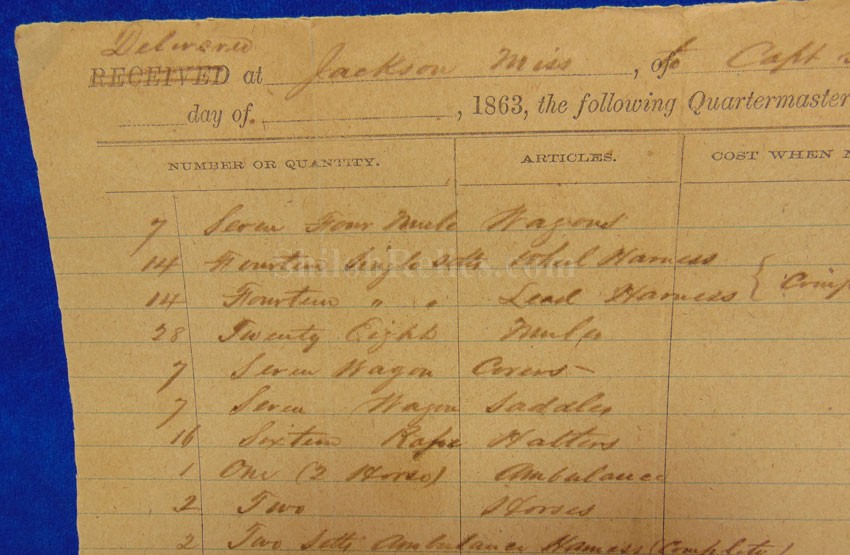 Delivered
RECEIVED at Jackson Miss, of to Capt
day of , 1863, the following Quartermaster
NUMBER OR QUANTITY. ARTICLES. COST WHEN
7 Seven Four Mule Wagons
14 Fourteen Single Setts Wheel Harness
14 Fourteen " " Lead Harness }
28 Twenty Eight Mules
7 Seven Wagon Covers
7 Seven Wagon Saddles
16 Sixteen Rope Halters
1 One (2 Horse) Ambulance
2 Two Horses
2 Two Setts Ambulance Harness (Complete)
ShilohRelics.com